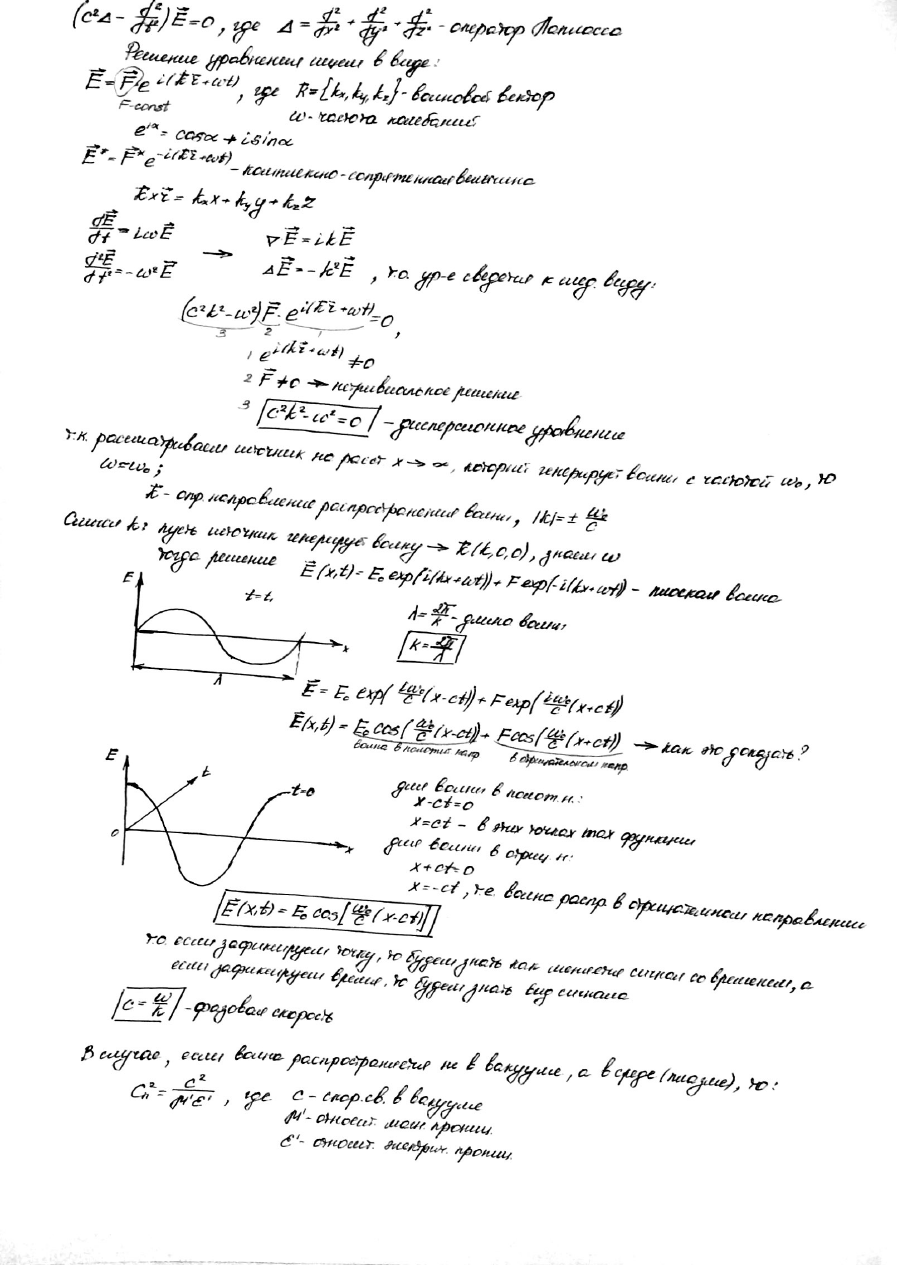 (c²Δ - d²/dt²)E⃗ = 0, где Δ = d²/dx² + d²/dy² + d²/dz² - оператор Лапласа
Решение уравнения ищем в виде:
E⃗ = F⃗e^{i(k⃗r⃗+ωt)}, где k⃗ = {kx, ky, kz} - волновой вектор
F-const
ω - частота колебаний
e^{iα} = cosα + i sinα
E⃗* = F⃗*e^{-i(k⃗r⃗+ωt)} - комплексно-сопряженная величина
k⃗×r⃗ = kxx + kyy + kzz
dE⃗/dt = iωE⃗ → ∇E⃗ = ikE⃗
d²E⃗/dt² = -ω²E⃗ ΔE⃗ = -k²E⃗, т.о. ур-е сведется к след. виду:
(c²k² - ω²)F⃗·e^{i(k⃗r⃗+ωt)} = 0,
3 2 1
1 e^{i(k⃗r⃗+ωt)} ≠ 0
2 F⃗ ≠ 0 → нетривиальное решение
3 c²k² - ω² = 0 - дисперсионное уравнение
т.к. рассматриваем источник на расст x → ∞, который генерирует волны с частотой ω₀, то
ω = ω₀;
k⃗ - опр. направление распространения волны, |k| = ± ω₀/c
Смысл k: пусть источник генерирует волну → k⃗(k,0,0), знаем ω
тогда решение E⃗(x,t) = E₀exp(i(kx+ωt)) + Fexp(-i(kx+ωt)) - плоская волна
E t = t₁ x λ
λ = 2π/k - длина волны
k = 2π/λ
E⃗ = E₀ exp(iω₀/c (x-ct)) + F exp(iω₀/c (x+ct))
E⃗(x,t) = E₀ cos(ω₀/c (x-ct)) + F cos(ω₀/c (x+ct)) → как это доказать?
волна в полож. напр. в отрицательном напр.
E t t=0 0 x
для волны в полож. н.:
x-ct=0
x=ct - в этих точках max функции
для волны в отриц н:
x+ct=0
x=-ct, т.е. волна распр. в отрицательном направлении
E⃗(x,t) = E₀ cos[ω₀/c (x-ct)]
т.о. если зафиксируем точку, то будем знать как меняется сигнал со временем, а
если зафиксируем время, то будем знать вид сигнала
c = ω/k - фазовая скорость
В случае, если волна распространяется не в вакууме, а в среде (плазме), то:
Cп² = c²/μ'ε', где c - скор. св. в вакууме
μ' - относит. магн. прониц.
ε' - относит. электрич. прониц.